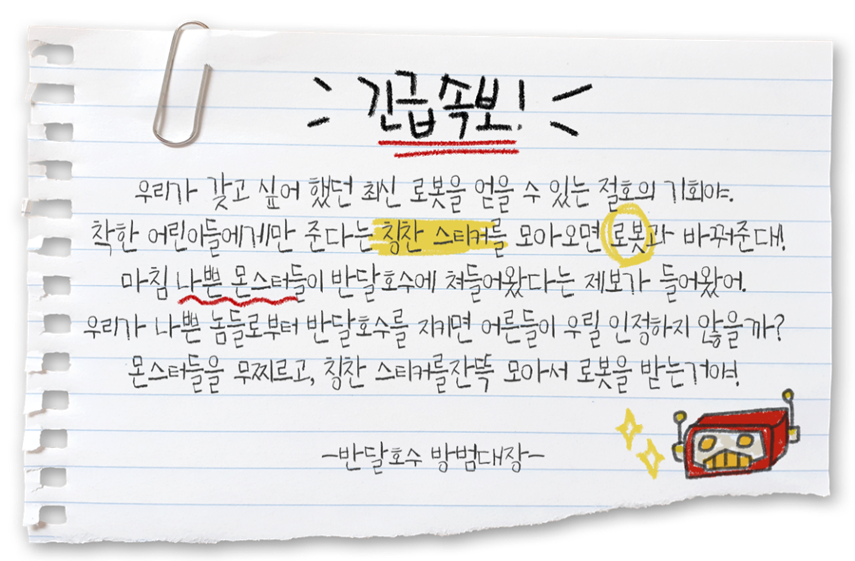 긴급속보!
우리가 갖고 싶어 했던 최신 로봇을 얻을 수 있는 절호의 기회야.
착한 어린이들에게만 준다는 칭찬 스티커를 모아오면 로봇과 바꿔준대!
마침 나쁜 몬스터들이 반달호수에 쳐들어왔다는 제보가 들어왔어.
우리가 나쁜 놈들로부터 반달호수를 지키면 어른들이 우릴 인정하지 않을까?
몬스터들을 무찌르고, 칭찬 스티커를잔뜩 모아서 로봇을 받는거야!
-반달호수 방범대장-